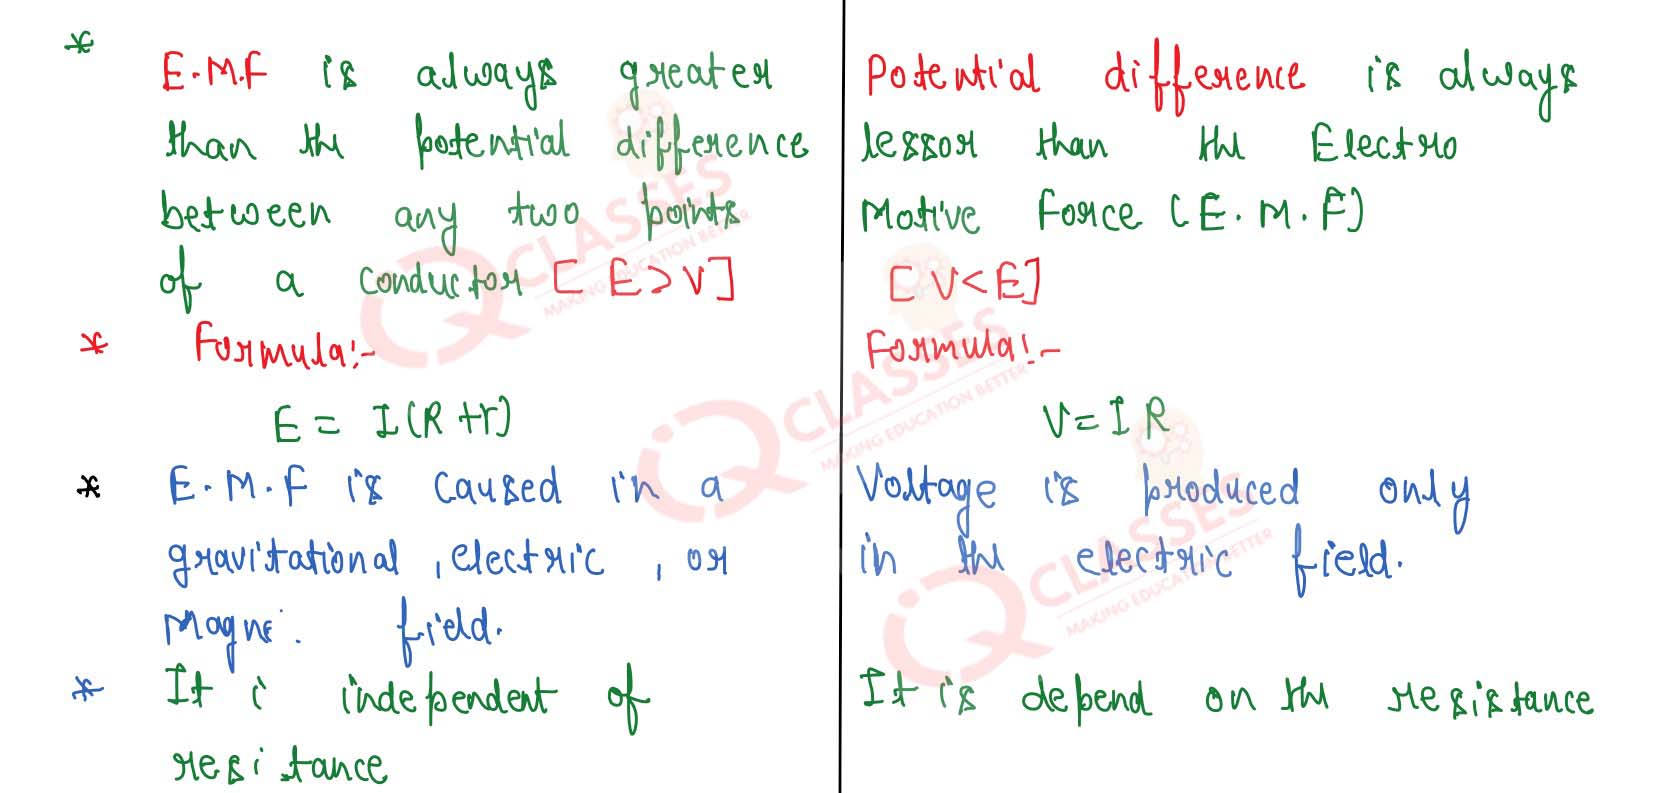 * E.M.F is always greater
than the potential difference
between any two points
of a conductor [ E > V ]
* Formula:-
E = I(R+r)
* E.M.F is caused in a
gravitational, electric, or
Magne. field.
* It i independent of
resi tance
Potential difference is always
lessor than the Electro
Motive Force (E.M.F)
[ V < E ]
Formula:-
V = I R
Voltage is produced only
in the electric field.
It is depend on the resistance
IQ CLASSES
MAKING EDUCATION BETTER
IQ CLASSES
MAKING EDUCATION BETTER
IQ CLASSES
MAKING EDUCATION BETTER